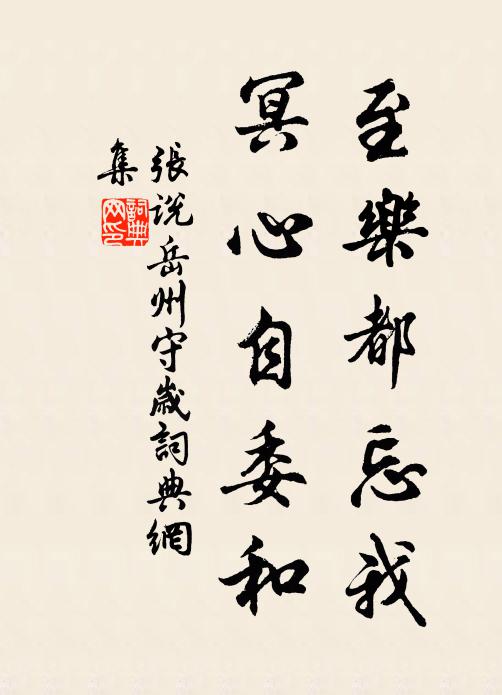 至樂都忘我
冥心自委和
張說岳州守歲詞典網
集
詞典
网印